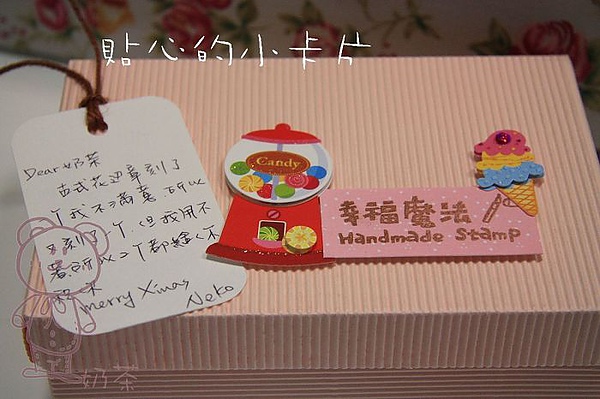 貼心的小卡片
Dear 奶茶
古式花邊章刻了
丫我不滿意,所以
又刻了一丫,但我用不
著所以二丫都給你
merry Xmas
Neko
Candy
幸福魔法
Handmade Stamp
奶茶